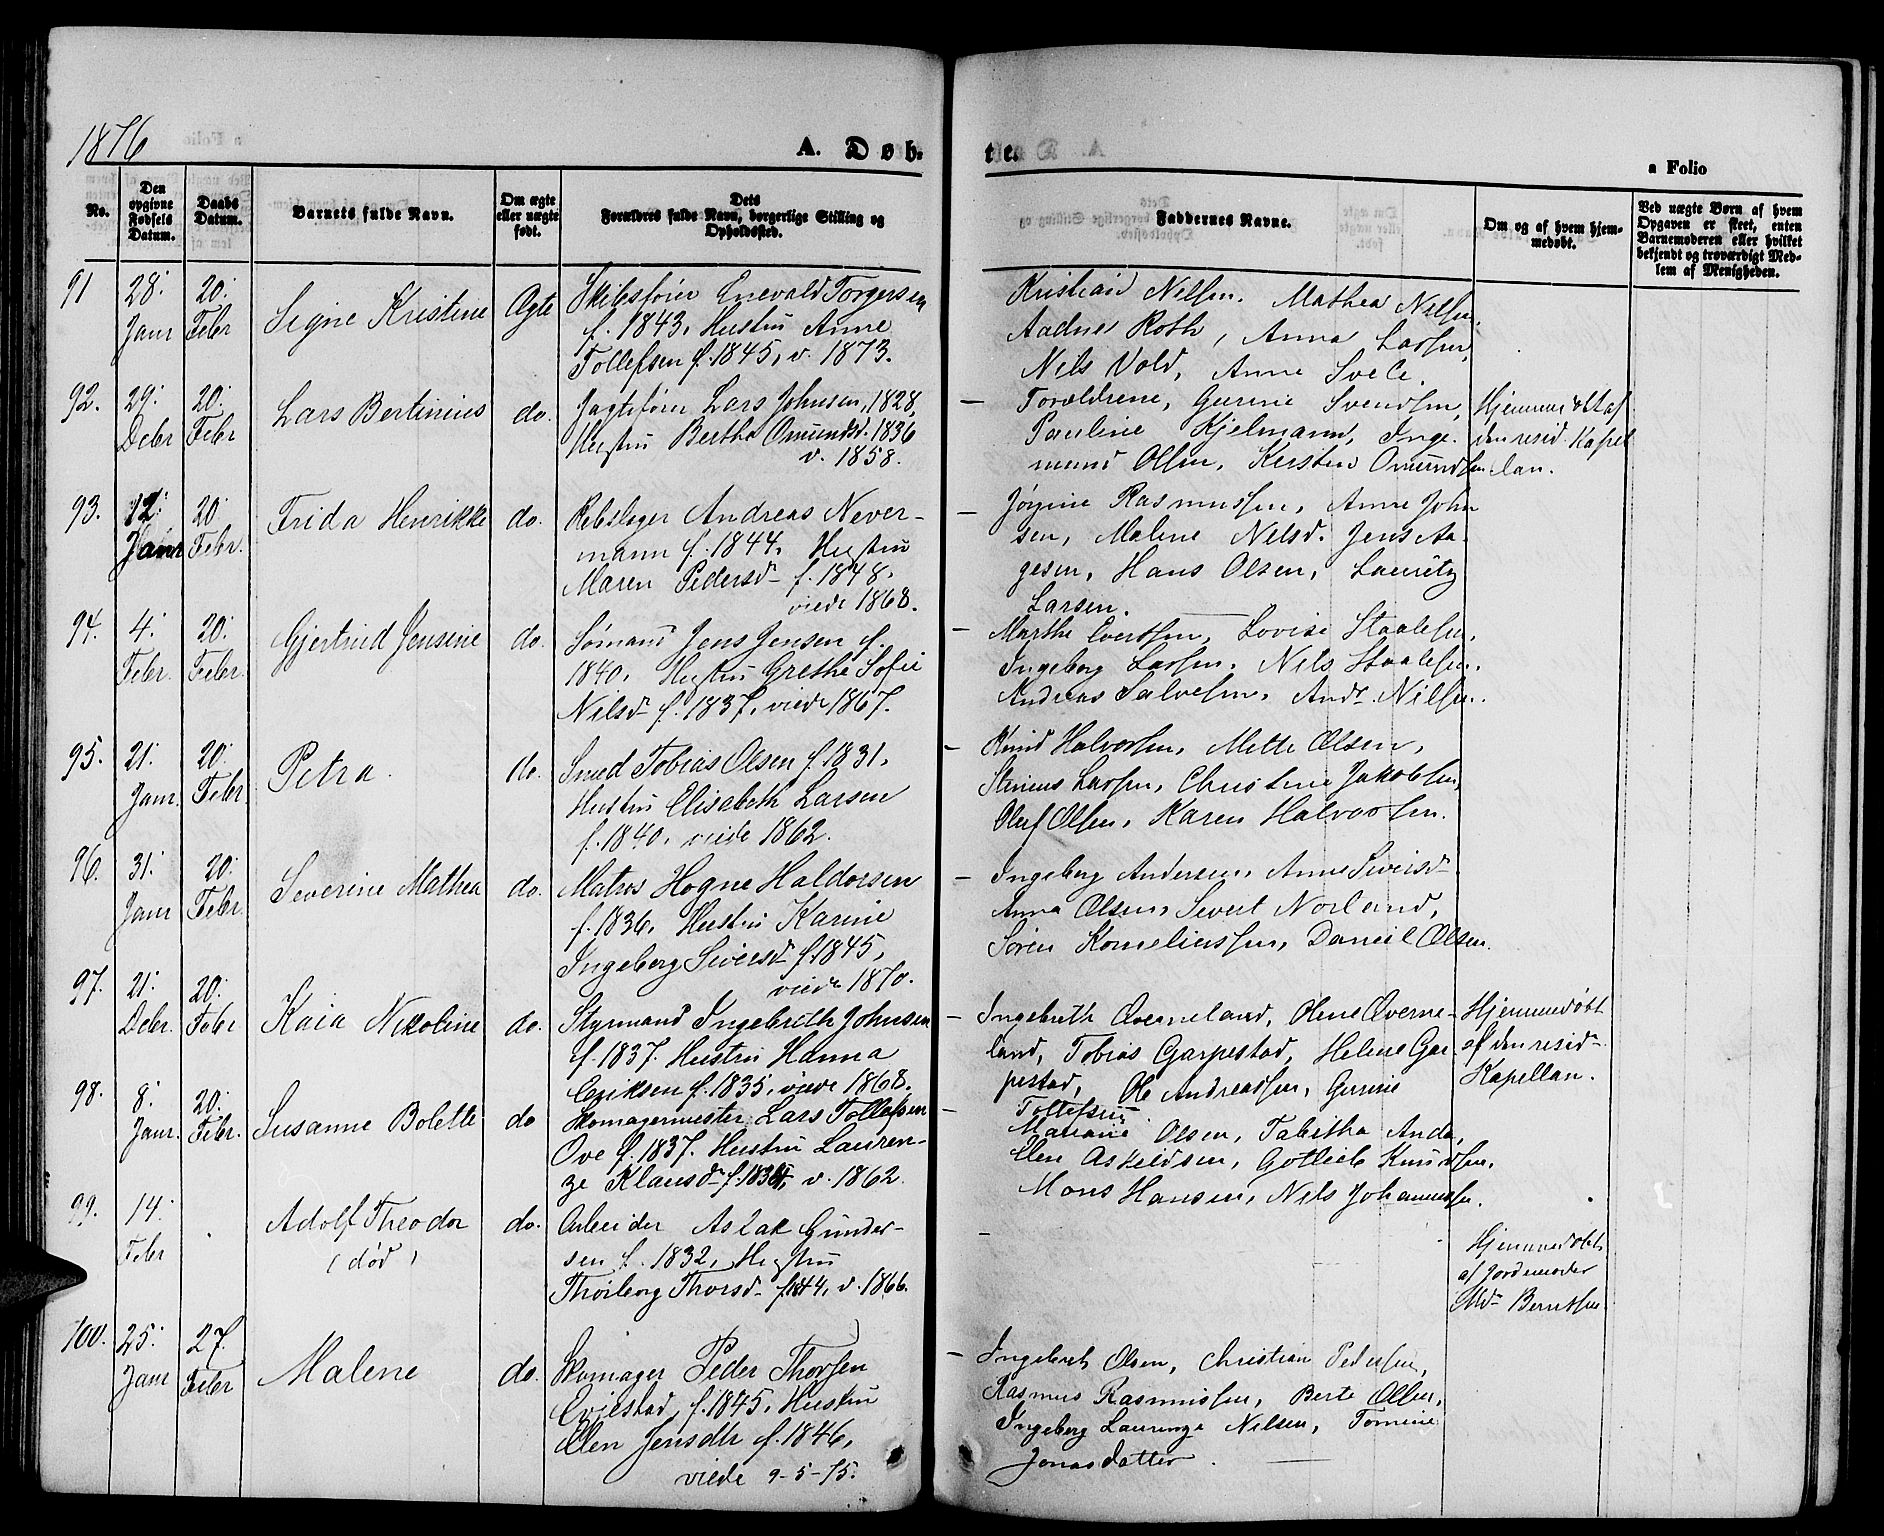 1876
A. Døb.
te.
a Folio
No.
Den opgivne Fødsels Datum.
Daabs Datum.
Barnets fulde Navn.
Om ægte eller uægte født.
Dets Forældres fulde Navn, borgerlige Stilling og Opholdssted.
Faddernes Navne.
Om og af hvem hjemmedøbt.
Ved uægte Børn af hvem Opgaven er skeet, enten Barnemoderen eller hvilket bekjendt og troværdigt Medlem af Menigheden.
91 28: Janr 20: Febr
Signe Kristine
Ægte
Skibsfører Enevald Torgersen
f. 1843, Hustru Anne
Tollefsen f. 1845, v. 1873.
Kristian Nilsen, Mathea Nilsen,
Aadne Roth, Anna Larsen,
Nils Vold, Anne Svele.
92. 29: Debr 20: Febr
Lars Bertinius
do.
Jagtsfører Lars Johnsen, 1828,
Hustru Bertha Omundsd. 1836
v. 1858.
– Forældrene, Gurine Svendsen,
Pauline Kjelmann, Inge-
mund Olsen, Kirsten Omundsen
Hjemmedøbt af
den resid. Kapel
lan.
93. 12: Janr 20 Febr.
Frida Henrikke
do.
Rebslager Andreas Never-
mann f. 1844, Hustru
Maren Pedersd f. 1848,
viede 1868.
– Jørgine Rasmussen, Anne John
sen, Malene Nelsd. Jens Aa-
gesen, Hans Olsen, Lauritz
Larsen.
94. 4: Febr. 20: Febr.
Gjertrud Jensine
do.
Sømand Jens Jensen f.
1840, Hustru Grethe Sofie
Nilsd f. 1837, viede 1867.
– Marthe Evertsen, Lovise Staalesen,
Ingeborg Larsen, Nils Staalesen,
Andreas Salvesen, Andr. Nilsen.
95. 21: Janr. 20: Febr
Petra
do.
Smed Tobias Olsen f. 1831,
Hustru Elisabeth Larsen
f. 1840, viede 1862.
– Knud Halvorsen, Mette Olsen,
Larsen, Christine Jakobsen,
Oluf Olsen, Karen Halvorsen.
96. 31: Janr 20: Febr.
Severine Mathea
do.
Matros Hogne Haldorsen
f. 1836, Hustru Karine
Ingeborg Siversd f. 1845,
viede 1870.
– Ingeborg Andersen, Anne Siversd
Anna Olsen, Severt Norland,
Søren Korneliussen, Daniel Olsen.
97. 21: Debr. 20: Febr
Kaia Nikoline
do.
Styrmand Ingebrith Johnsen
f. 1837. Hustru Hanna
Eriksen f. 1835, viede 1868.
– Ingebreth Øverneland, Olene Øverne-
land, Tobias Garpestad, Helene Gar-
pestad, Ole Andreassen, Gurine
Tollefsen
Hjemmedøbt
af den resid
Kapellan.
98. 8: Janr. 20: Febr.
Susanne Bolette
do
Skomagermester Lars Tollefsen
Ove f. 1837. Hustru Lauren-
ze Klausd v. 1862.
– Mariane Olsen, Tabitha Anda,
Elen Askeldsen, Gotlieb Knudsen,
Mons Hansen, Nils Johannessen.
99. 14: Febr
Adolf Theodor
(død)
do.
Arbeider Aslak Gunder-
sen f. 1832, Hustru
Thorborg Thorsd f. 44, v. 1866.
–
Hjemmedøbt
af Jordemoder
Md. Berntsen
100. 25: Janr 27. Febr
Malene
do.
Skomager Peder Thorsen
f. 1845, Hustru
Elen Jensdtr f. 1846,
viede 9-5-75.
– Ingebret Olsen, Christian Pedersen,
Rasmus Rasmussen, Berte Olsen,
Ingeborg Laurenze Nilsen, Tomine
Jonasdatter.